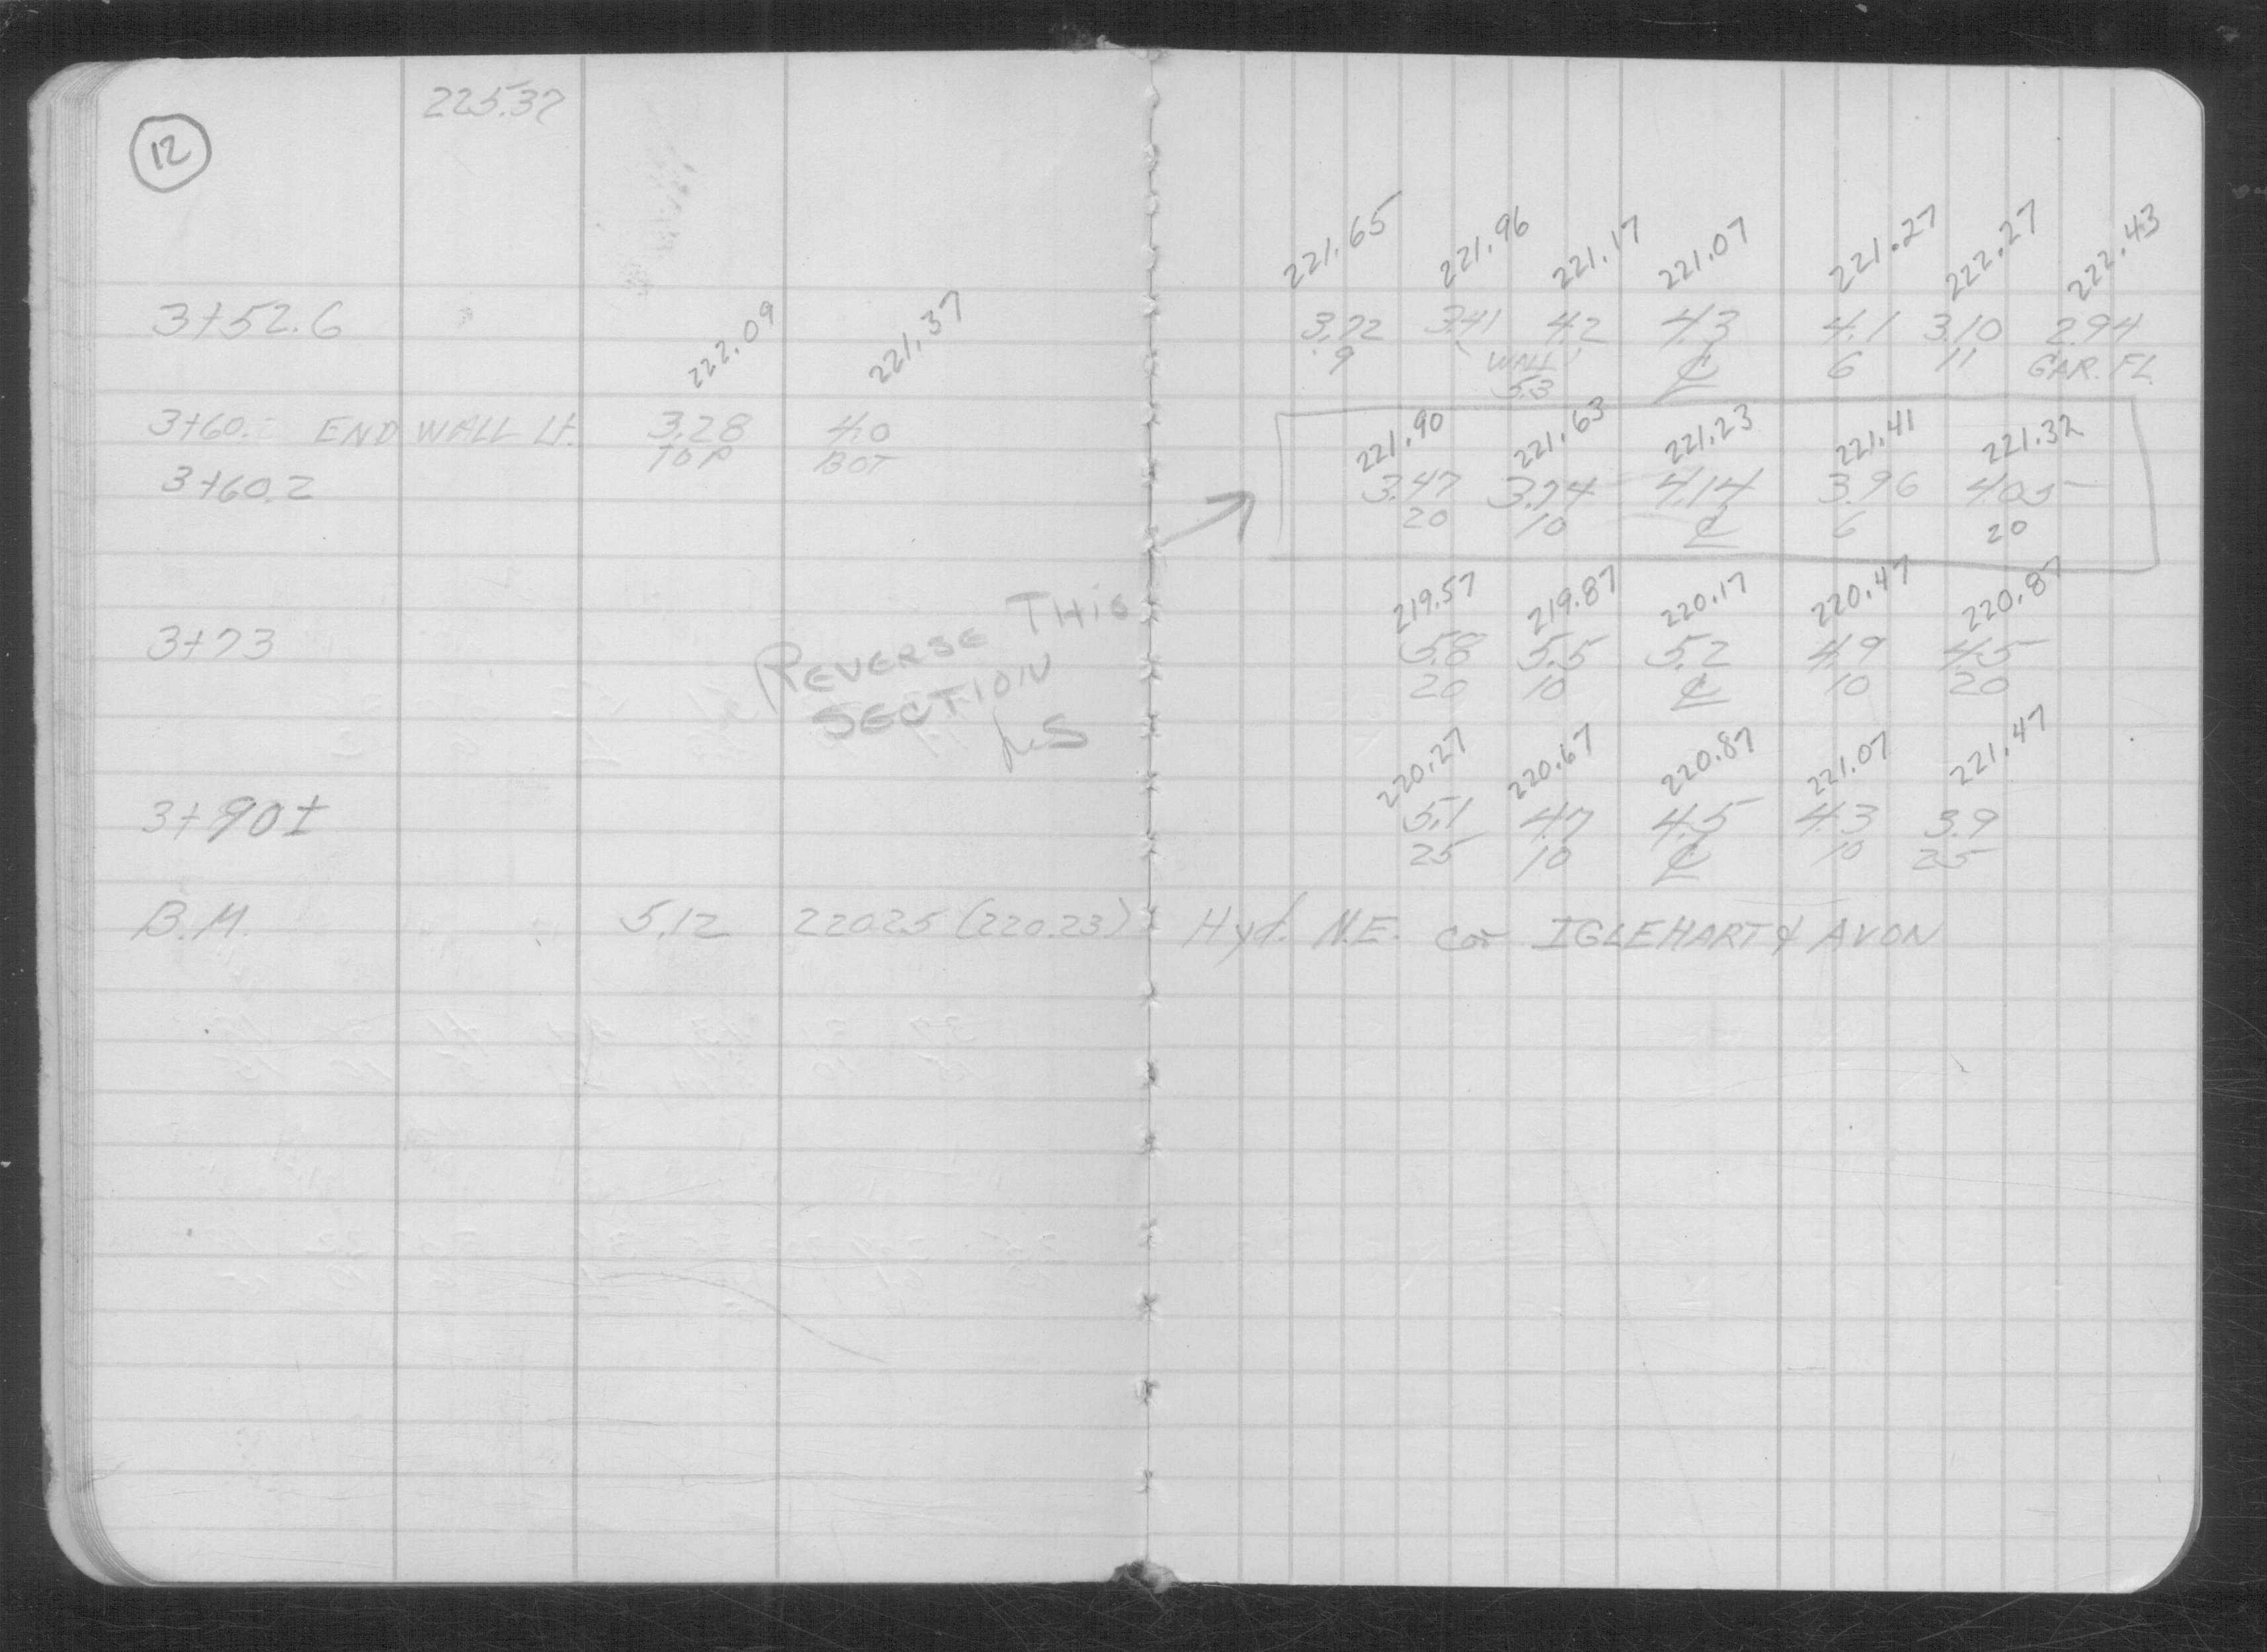 12
225.37
221.65 221.96 221.17 221.07 221.27 222.27 222.43
3+52.6 3.72 3.41 4.2 4.3 4.1 3.10 2.94
9 WALL ℄ 6 11 GAR. FL.
5.3
222.09 221.37
3+60. END WALL Lt. 3.28 4.0
TOP BOT
221.90 221.63 221.23 221.41 221.32
3+60.2 3.47 3.74 4.14 3.96 4.05
20 10 ℄ 6 20
REVERSE THIS
SECTION
219.57 219.87 220.17 220.47 220.87
3+73 5.8 5.5 5.2 4.9 4.5
20 10 ℄ 10 20
220.27 220.67 220.87 221.07 221.47
3+90± 5.1 4.7 4.5 4.3 3.9
25 10 ℄ 10 25
B.M. 5.12 220.25 (220.23) Hyd. N.E. cor IGLEHART & AVON